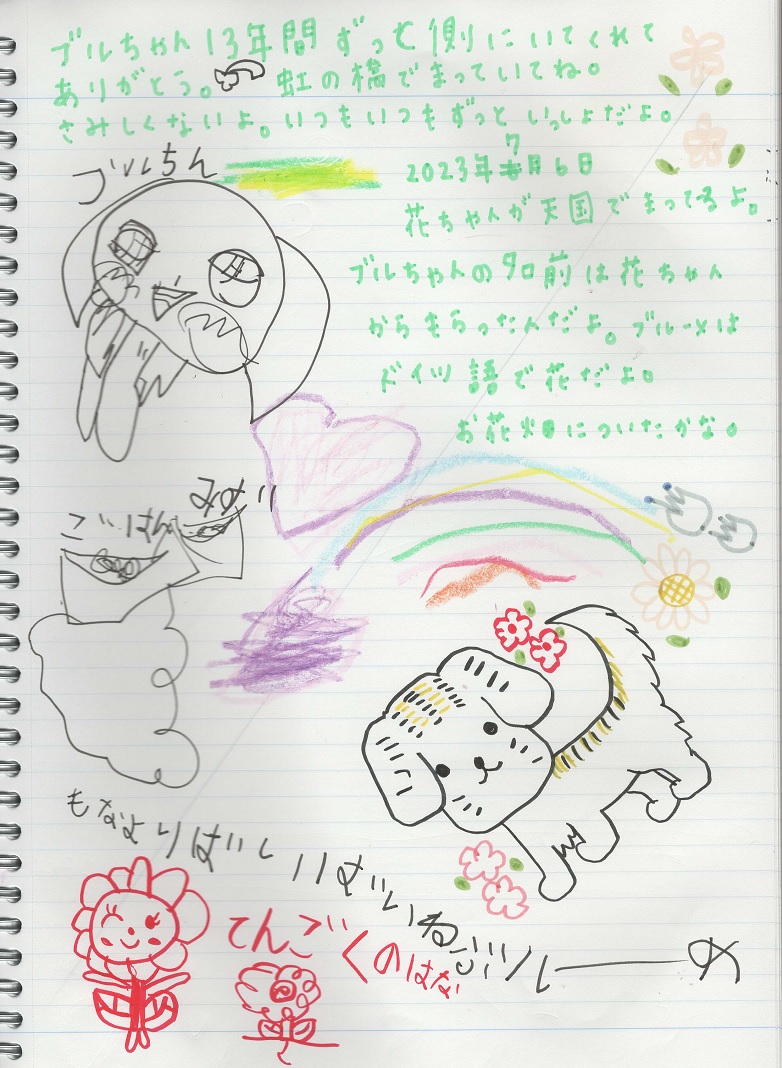 ブルちゃん13年間ずっと側にいてくれて
ありがとう。虹の橋でまっていてね。
さみしくないよ。いつもいつもずっといっしょだよ。
2023年7月6日
花ちゃんが天国でまってるよ。
ブルちゃんの名前は花ちゃん
からもらったんだよ。ブルーメは
ドイツ語で花だよ。
お花畑についたかな。
ブルちん
みず
ごはん
もなより ばいばいいぬ
ブルーーめ
てんごくのはな